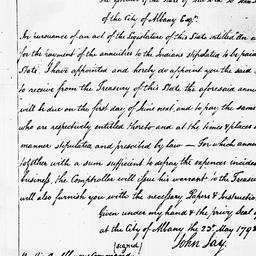 of the City of Albany Esqr.
In pursuance of an act of the Legislature of this State entitled An a
for the payment of the annuities to the Indians stipulated to be paid
State. I have appointed and hereby do appoint you the said
to receive from the Treasury of this State the aforesaid ann
will be due on the first day of June next, and to pay the same
who are respectively entitled thereto and at the times & places
manner stipulated and prescribed by law — For which amoun
together with a sum sufficient to defray the expences incident
business, the Comptroller will issue his warrant to the Treasure
will also furnish you with the necessary Papers & Instruction
Given under my hand & the privy Seal
at the City of Albany the 23d May 179
(signed)
John Jay.